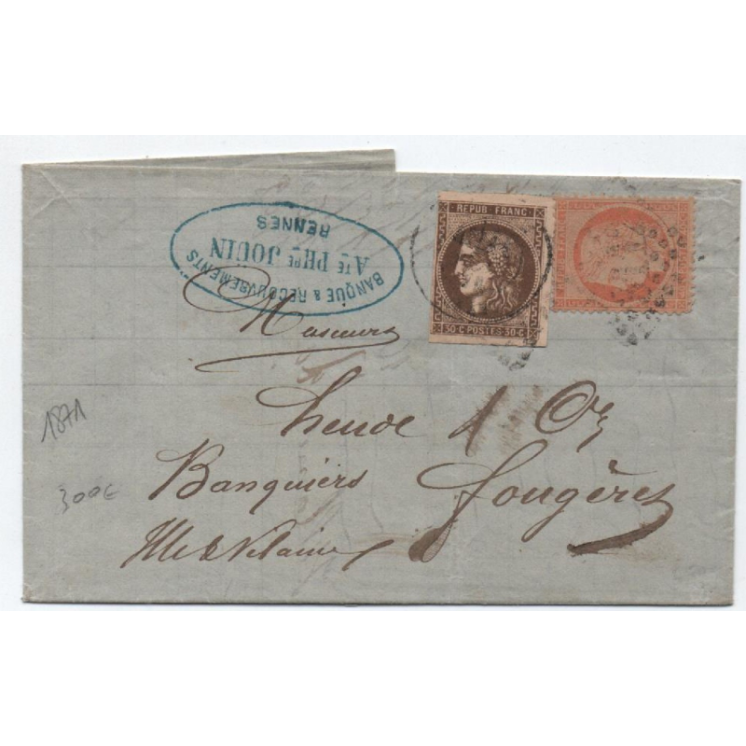 REPUB FRANC
30·C·POSTES·30·C
BANQUE & RECOUVREMENTS
Ate PHpe JOUIN
RENNES
Messieurs
& Oz
Banquiers Fougères
Ille & Vilaine
1871
300€